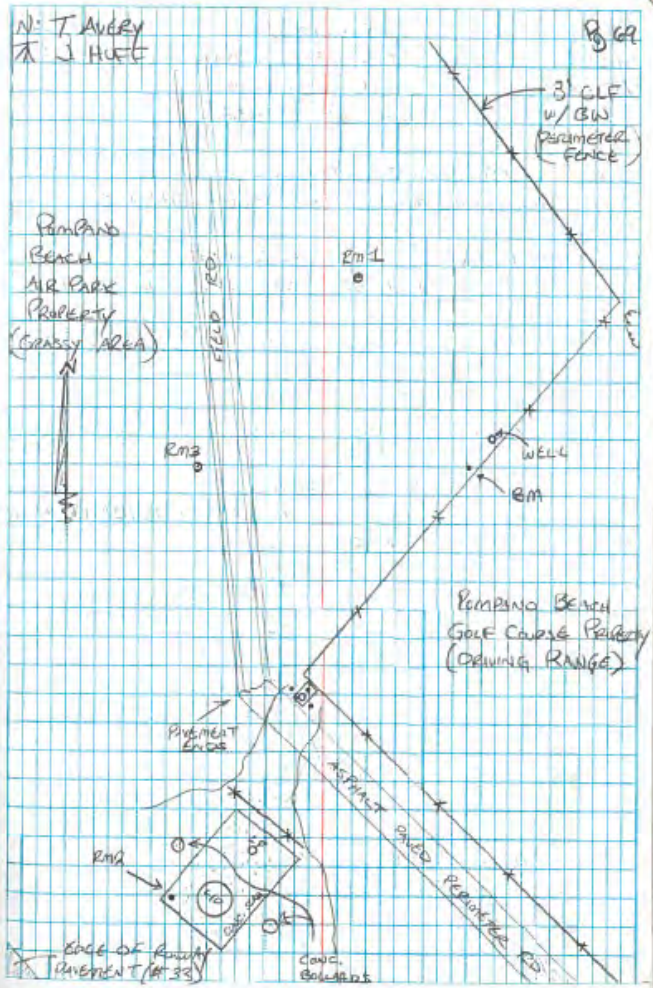 N: T AVERY
J HUFF
Pg 69
3' CLF
w/ BW
(PERIMETER
FENCE)
POMPANO
BEACH
AIR PARK
PROPERTY
(GRASSY AREA)
N
FIELD RD.
Rm 1
Rm3
WELL
BM
POMPANO BEACH
GOLF COURSE PROPERTY
(DRIVING RANGE)
PAVEMENT
ENDS
ASPHALT PAVED PERIMETER RD.
Rm2
CONC.
EDGE OF RUNWAY
PAVEMENT (#33)
CONC.
BOLLARDS